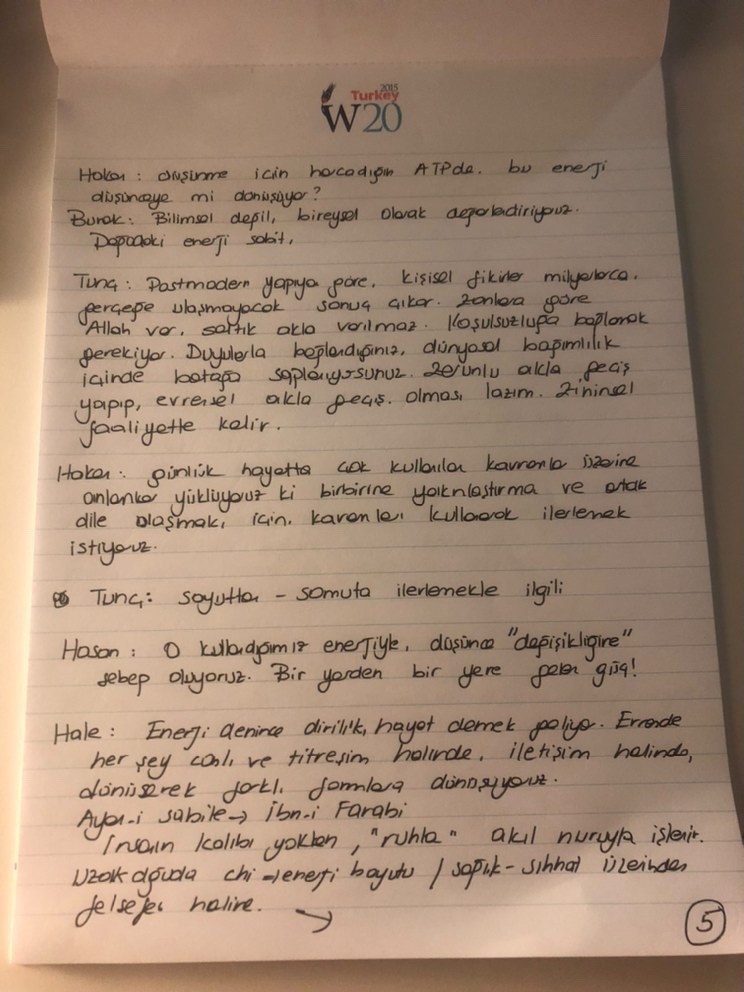 2015
Turkey
W20
Hakan : düşünme için harcadığın ATPde, bu enerji
düşünceye mi dönüşüyor?
Burak : Bilimsel değil, bireysel olarak değerlendiriyoruz.
Doğadaki enerji sabit.
Tunç : Postmodern yapıya göre, kişisel fikirler milyarlarca,
gerçeğe ulaşmayacak sonuç çıkar. Zanlara göre
Allah var, saltık akla varılmaz. Koşulsuzluğa bağlamak
gerekiyor. Duyularla bağlandığınız, dünyasal bağımlılık
içinde batağa saplanıyorsunuz. Zorunlu akla geçiş
yapıp, evrensel akla geçiş olması lazım. Zihinsel
faaliyette kalır.
Hakan : günlük hayatta çok kullanılan kavramlar üzerine
anlamlar yüklüyoruz ki birbirine yakınlaştırma ve ortak
dile ulaşmak için, kavramları kullanarak ilerlemek
istiyoruz.
Tunç : soyuttan - somuta ilerlemekle ilgili
Hasan : O kullandığımız enerjiyle, düşünce "değişikliğine"
sebep oluyoruz. Bir yerden bir yere gelen güç!
Hale : Enerji denince dirilik, hayat demek geliyor. Evrende
her şey canlı ve titreşim halinde, iletişim halinde,
dönüşerek farklı formlara dönüşüyoruz.
Ayan-ı sabite → İbn-i Farabi
İnsanın kalıbı yokken, "ruhla" akıl nuruyla işlenir.
Uzakdoğuda chi → enerji boyutu / sağlık - sıhhat üzerinden
felsefe haline. →
5